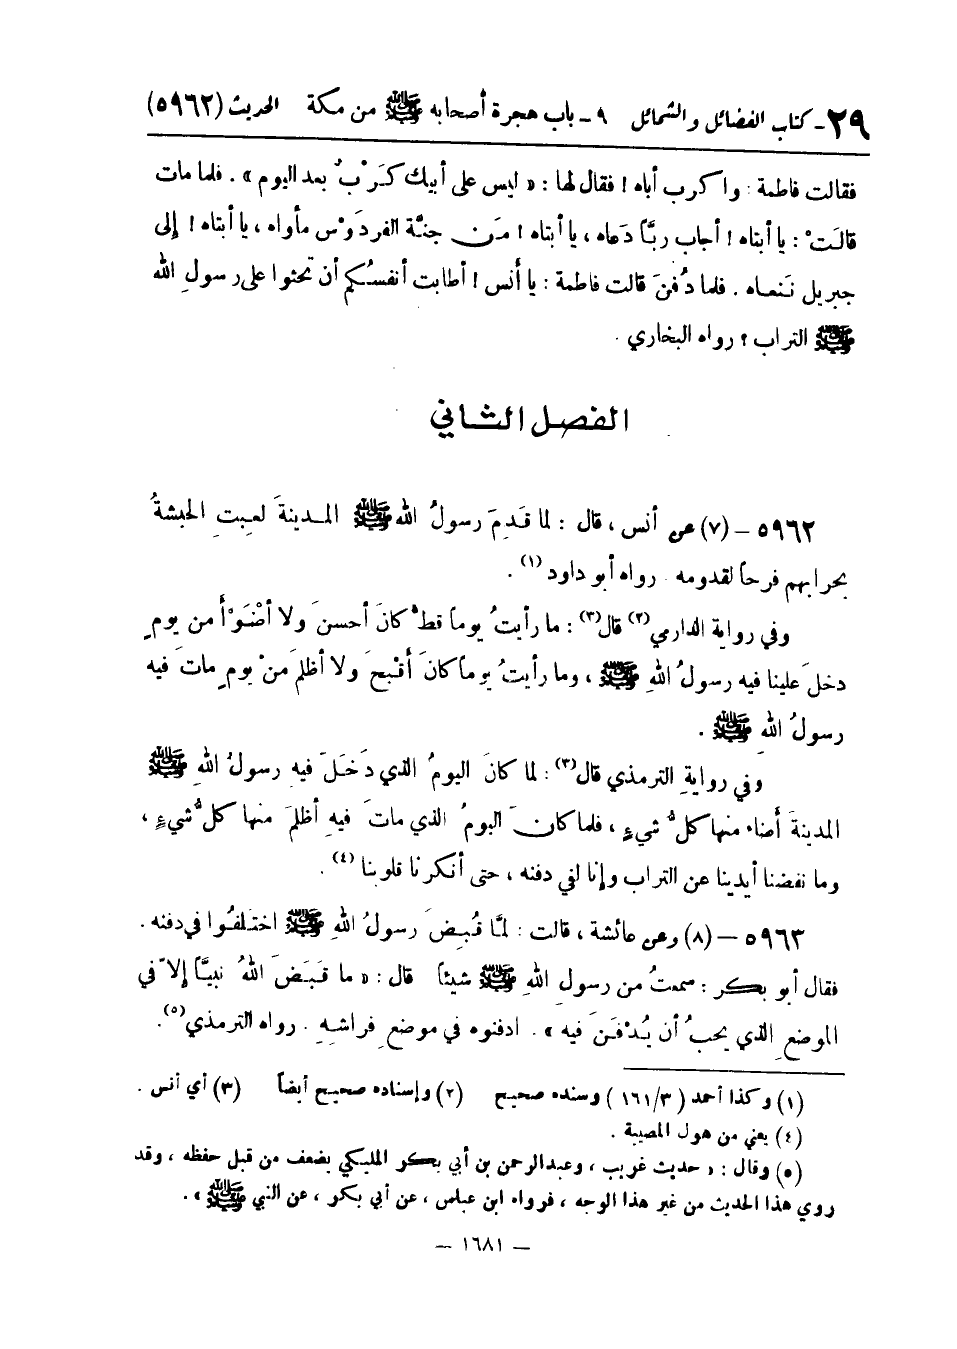 ٢٩ - كتاب الفضائل والشمائل ٩ - باب هجرة أصحابه ﷺ من مكة الحديث (٥٩٦٢)
فقالت فاطمة : واكرب أباه ! فقال لها : « ليس على أبيك كَرْبٌ بعد اليوم » . فلما مات
قالَتْ : يا أبتاه ! أجاب ربَّاً دَعاه ، يا أبتاه ! مَن جنَّة الفردَوْس مأواه ، يا أبتاه ! إلى
جبريل نَنعاه . فلما دُفنَ قالت فاطمة : يا أنس ! أطابت أنفسُكم أن تحثوا على رسولِ الله
ﷺ التراب ؟ رواه البخاري .
الفصل الثاني
٥٩٦٢ – (٧) عن أنس ، قال : لما قَدِمَ رسولُ الله ﷺ المدينةَ لعِبتِ الحبشةُ
بحرابهم فرحاً لقدومه . رواه أبو داود (١) .
وفي رواية الدارمي (٢) قال (٣) : ما رأيتُ يوماً قطُّ كانَ أحسنَ ولا أضْوَأَ من يومٍ
دخلَ علينا فيه رسولُ اللهِ ﷺ ، وما رأيتُ يوماً كانَ أقْبحَ ولا أظلمَ منْ يومٍ ماتَ فيه
رسولُ اللهِ ﷺ .
وفي روايةِ الترمذي قال (٣) : لما كانَ اليومُ الذي دَخَلَ فيهِ رسولُ اللهِ ﷺ
المدينةَ أضاء منها كلُّ شيءٍ ، فلما كانَ اليومُ الذي ماتَ فيهِ أظلمَ منها كلُّ شيءٍ ،
وما نفضنا أيدينا عن التراب وإنا لفي دفنه ، حتى أنكرنا قلوبنا (٤) .
٥٩٦٣ – (٨) وعن عائشة ، قالت : لمَّا قُبِضَ رسولُ اللهِ ﷺ اختلفُوا في دفنه .
فقال أبو بكر : سمعتُ من رسولِ اللهِ ﷺ شيئاً قال : « ما قَبَضَ اللهُ نبيَّاً إلاّ في
الموضعِ الذي يحبُ أن يُدْفَنَ فيه » . ادفنوه في موضعِ فراشِهِ . رواه الترمذي (٥) .
(١) وكذا أحمد ( ١٦١/٣ ) وسنده صحيح (٢) وإسناده صحيح أيضاً (٣) أي أنس .
(٤) يعني من هول المصيبة .
(٥) وقال : « حديث غريب ، وعبدالرحمن بن أبي بكر المليكي يضعف من قبل حفظه ، وقد
روي هذا الحديث من غير هذا الوجه ، فرواه ابن عباس ، عن أبي بكر ، عن النبي ﷺ » .
– ١٦٨١ –